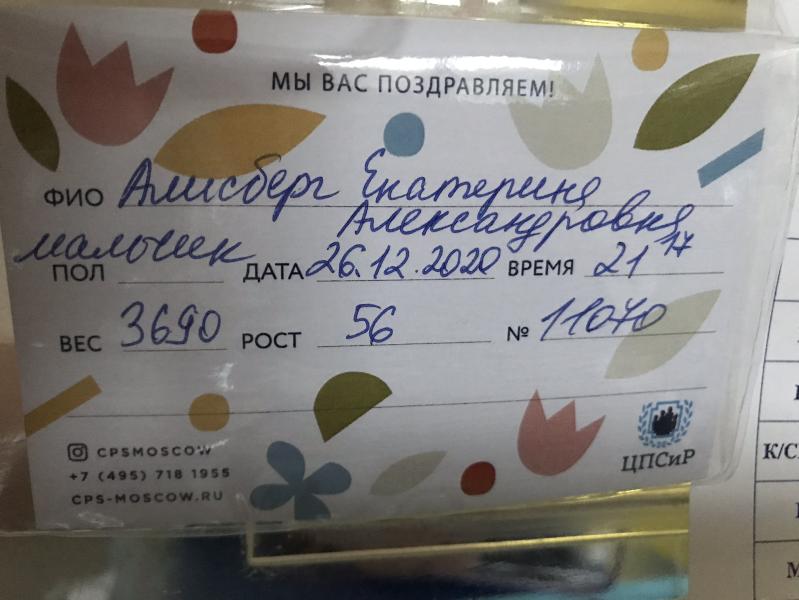 МЫ ВАС ПОЗДРАВЛЯЕМ!
ФИО Алисберг Екатерина
Александровна
мальчик
ПОЛ ДАТА 26.12.2020 ВРЕМЯ 21 17
ВЕС 3690 РОСТ 56 № 11070
CPSMOSCOW
+7 (495) 718 1955
CPS-MOSCOW.RU
ЦПСиР
К/С